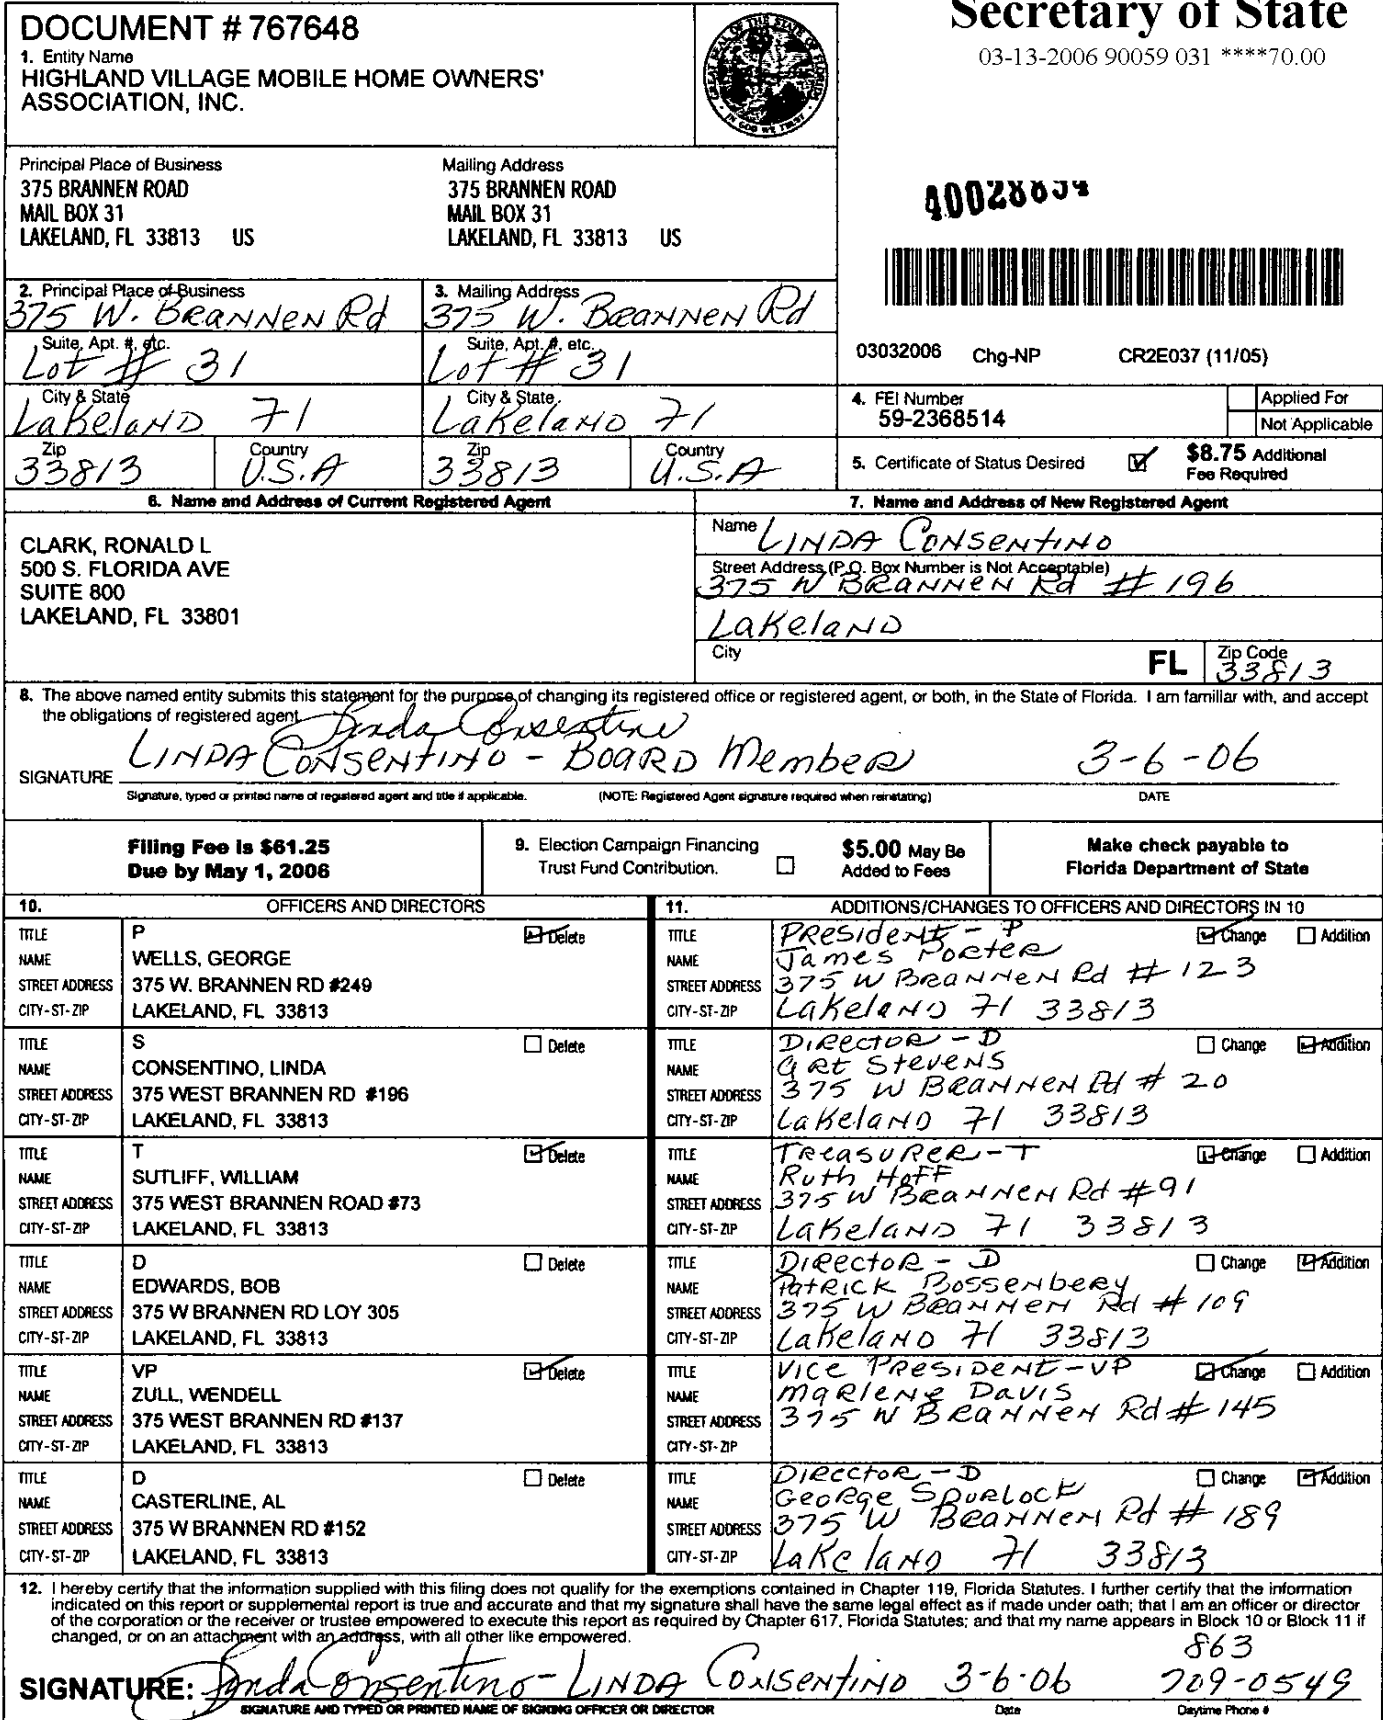 DOCUMENT # 767648
1. Entity Name
HIGHLAND VILLAGE MOBILE HOME OWNERS'
ASSOCIATION, INC.
Secretary of State
03-13-2006 90059 031 ****70.00
Principal Place of Business
375 BRANNEN ROAD
MAIL BOX 31
LAKELAND, FL 33813 US
Mailing Address
375 BRANNEN ROAD
MAIL BOX 31
LAKELAND, FL 33813 US
2. Principal Place of Business
375 W. BRANNEN Rd
Suite, Apt. #, etc.
Lot # 31
City & State
LaKelaND Fl
Zip
33813
Country
U.S.A
3. Mailing Address
375 W. BRANNEN Rd
Suite, Apt. #, etc.
Lot # 31
City & State
LaKelaND Fl
Zip
33813
Country
U.S.A
03032006 Chg-NP CR2E037 (11/05)
4. FEI Number
59-2368514
Applied For
Not Applicable
5. Certificate of Status Desired
$8.75 Additional
Fee Required
6. Name and Address of Current Registered Agent
CLARK, RONALD L
500 S. FLORIDA AVE
SUITE 800
LAKELAND, FL 33801
7. Name and Address of New Registered Agent
Name LINDA CONSENTINO
Street Address (P.O. Box Number is Not Acceptable)
375 W BRANNEN Rd # 196
LaKelaND
City
FL
Zip Code
33813
8. The above named entity submits this statement for the purpose of changing its registered office or registered agent, or both, in the State of Florida. I am familiar with, and accept
the obligations of registered agent.
Linda Consentino
SIGNATURE LINDA CONSENTINO - BOARD Member 3-6-06
Signature, typed or printed name of registered agent and title if applicable. (NOTE: Registered Agent signature required when reinstating) DATE
Filing Fee is $61.25
Due by May 1, 2006
9. Election Campaign Financing
Trust Fund Contribution.
$5.00 May Be
Added to Fees
Make check payable to
Florida Department of State
10. OFFICERS AND DIRECTORS
TITLE P Delete
NAME WELLS, GEORGE
STREET ADDRESS 375 W. BRANNEN RD #249
CITY-ST-ZIP LAKELAND, FL 33813
TITLE S Delete
NAME CONSENTINO, LINDA
STREET ADDRESS 375 WEST BRANNEN RD #196
CITY-ST-ZIP LAKELAND, FL 33813
TITLE T Delete
NAME SUTLIFF, WILLIAM
STREET ADDRESS 375 WEST BRANNEN ROAD #73
CITY-ST-ZIP LAKELAND, FL 33813
TITLE D Delete
NAME EDWARDS, BOB
STREET ADDRESS 375 W BRANNEN RD LOY 305
CITY-ST-ZIP LAKELAND, FL 33813
TITLE VP Delete
NAME ZULL, WENDELL
STREET ADDRESS 375 WEST BRANNEN RD #137
CITY-ST-ZIP LAKELAND, FL 33813
TITLE D Delete
NAME CASTERLINE, AL
STREET ADDRESS 375 W BRANNEN RD #152
CITY-ST-ZIP LAKELAND, FL 33813
11. ADDITIONS/CHANGES TO OFFICERS AND DIRECTORS IN 10
TITLE PResideNt - P Change Addition
NAME James PoRter
STREET ADDRESS 375 W BRANNEN Rd # 123
CITY-ST-ZIP LaKelaND Fl 33813
TITLE DIRectOR - D Change Addition
NAME aRt StevenS
STREET ADDRESS 375 W BRANNEN Rd # 20
CITY-ST-ZIP LaKelaND Fl 33813
TITLE TReaSURER - T Change Addition
NAME Ruth Hoff
STREET ADDRESS 375 W BRANNEN Rd #91
CITY-ST-ZIP LaKelaND Fl 33813
TITLE DIRectoR - D Change Addition
NAME PatRICK Bossenbery
STREET ADDRESS 375 W BRANNEN Rd # 109
CITY-ST-ZIP LaKelaND Fl 33813
TITLE VICE PRESIDENT - VP Change Addition
NAME MaRlene Davis
STREET ADDRESS 375 W BRANNEN Rd # 145
CITY-ST-ZIP
TITLE DIRectoR - D Change Addition
NAME GeoRge SpuRlock
STREET ADDRESS 375 W BRANNEN Rd # 189
CITY-ST-ZIP LaKelaND Fl 33813
12. I hereby certify that the information supplied with this filing does not qualify for the exemptions contained in Chapter 119, Florida Statutes. I further certify that the information
indicated on this report or supplemental report is true and accurate and that my signature shall have the same legal effect as if made under oath; that I am an officer or director
of the corporation or the receiver or trustee empowered to execute this report as required by Chapter 617, Florida Statutes; and that my name appears in Block 10 or Block 11 if
changed, or on an attachment with an address, with all other like empowered.
863
SIGNATURE: Linda Consentino - LINDA CONSENTINO 3-6-06 709-0549
SIGNATURE AND TYPED OR PRINTED NAME OF SIGNING OFFICER OR DIRECTOR Date Daytime Phone #